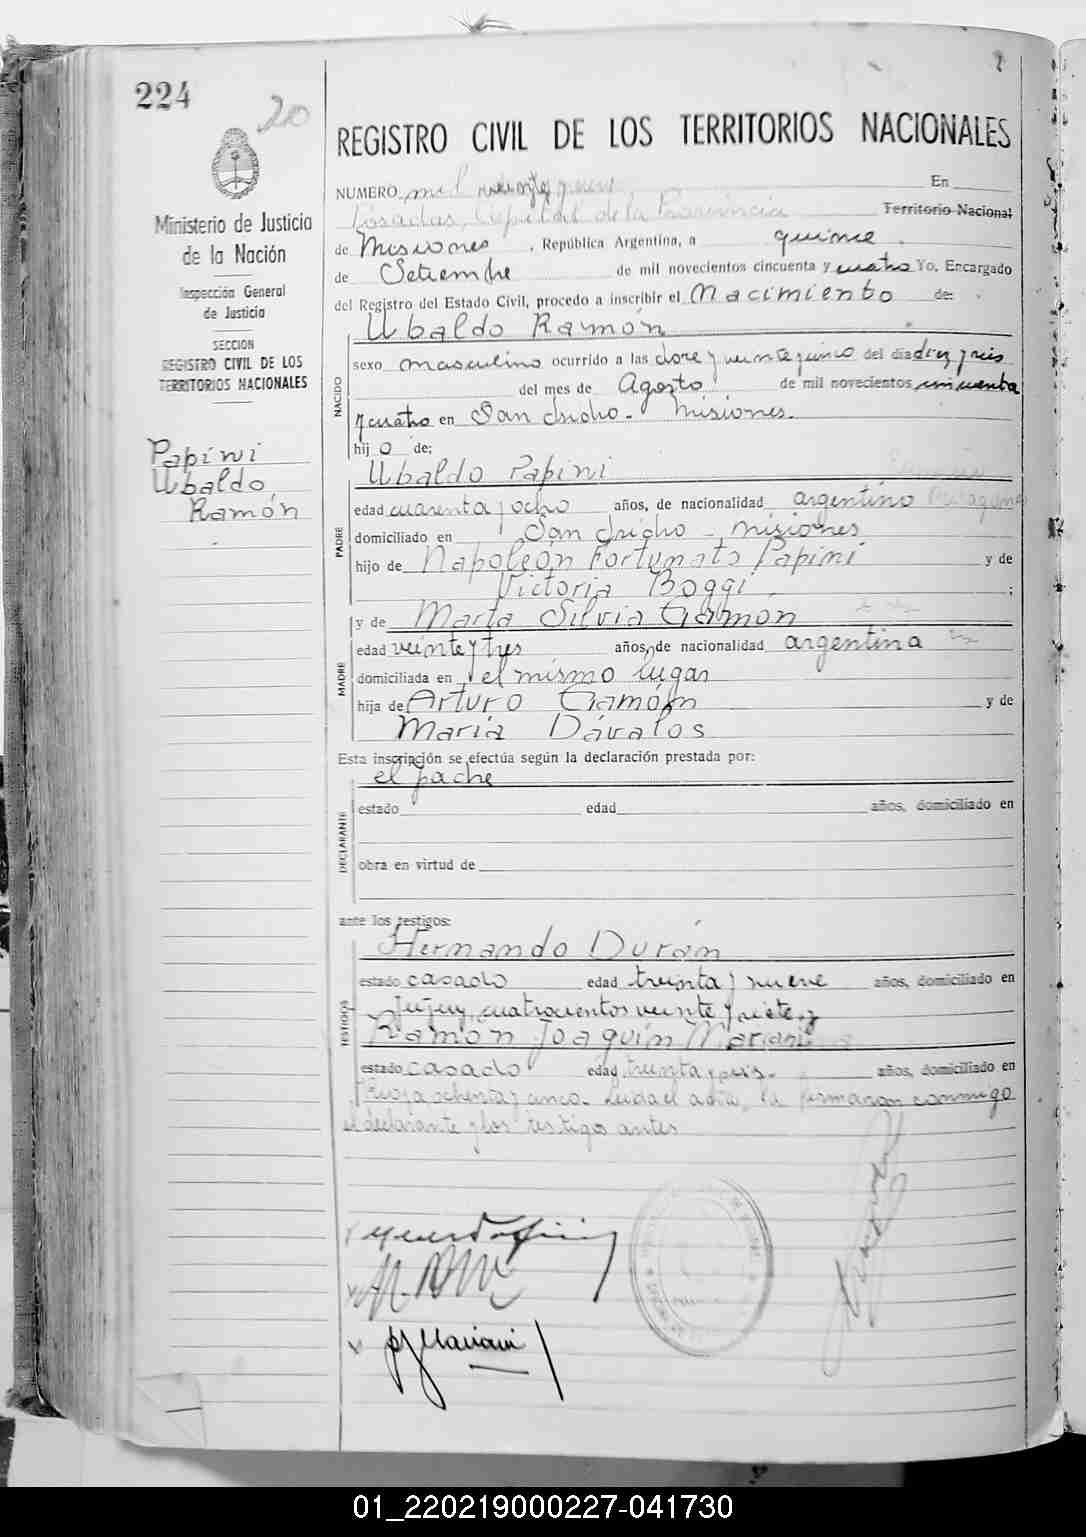 224
20
Ministerio de Justicia
de la Nación
Inspección General
de Justicia
SECCION
REGISTRO CIVIL DE LOS
TERRITORIOS NACIONALES
Papini
Ubaldo
Ramón
REGISTRO CIVIL DE LOS TERRITORIOS NACIONALES
NUMERO mil En
Posadas, Capital de la Provincia Territorio Nacional
de Misiones, República Argentina, a quince
de Setiembre de mil novecientos cincuenta y cuatro Yo, Encargado
del Registro del Estado Civil, procedo a inscribir el Nacimiento de:
Ubaldo Ramón
NACIDO
sexo masculino ocurrido a las doce y veinte y cinco del día diez y seis
del mes de Agosto de mil novecientos cincuenta
y cuatro en San Isidro. Misiones.
hijo de:
Ubaldo Papini
PADRE
edad cuarenta y ocho años, de nacionalidad argentino
domiciliado en San Isidro - Misiones
hijo de Napoleón Fortunato Papini y de
Victoria Boggi ;
y de Marta Silvia Gamón
MADRE
edad veinte y tres años, de nacionalidad argentina
domiciliada en el mismo lugar
hija de Arturo Gamón y de
María Dávalos
Esta inscripción se efectúa según la declaración prestada por:
el padre
DECLARANTE
estado edad años, domiciliado en
obra en virtud de
ante los testigos:
Hernando Durán
TESTIGOS
estado casado edad treinta y nueve años, domiciliado en
Jujuy, cuatrocientos veinte y siete y
Ramón Joaquín Mariani
estado casado edad treinta y seis. años, domiciliado en
Rioja ochenta y cinco. Leida el acta, la firmaron conmigo
el declarante y los testigos antes